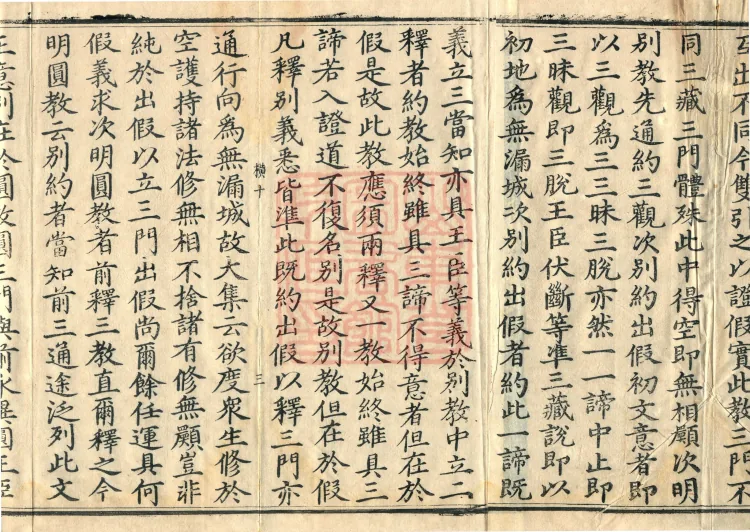 互出不同今雙引之以證假實此教三門不
同三藏三門體殊此中得空即無相願次明
別教先通約三觀次別約出假初文意者即
以三觀為三三昧三脫亦然一一諦中止即
三昧觀即三脫王臣伏斷等準三藏說即以
初地為無漏城次別約出假者約此一諦既
義立三當知亦具王臣等義於別教中立二
釋者約教始終雖具三諦不得意者但在於
假是故此教應須兩釋又一教始終雖具三
諦若入證道不復名別是故別教但在於假
凡釋別義悉皆準此既約出假以釋三門亦
橫十 三
通行向為無漏城故大集云欲度衆生修於
空護持諸法修無相不捨諸有修無願豈非
純於出假以立三門出假尚爾餘任運具何
假義求次明圓教者前釋三教直爾釋之今
明圓教云別約者當知前三通途泛列此文
正意別在於圓故圓三門與前永異圓王臣